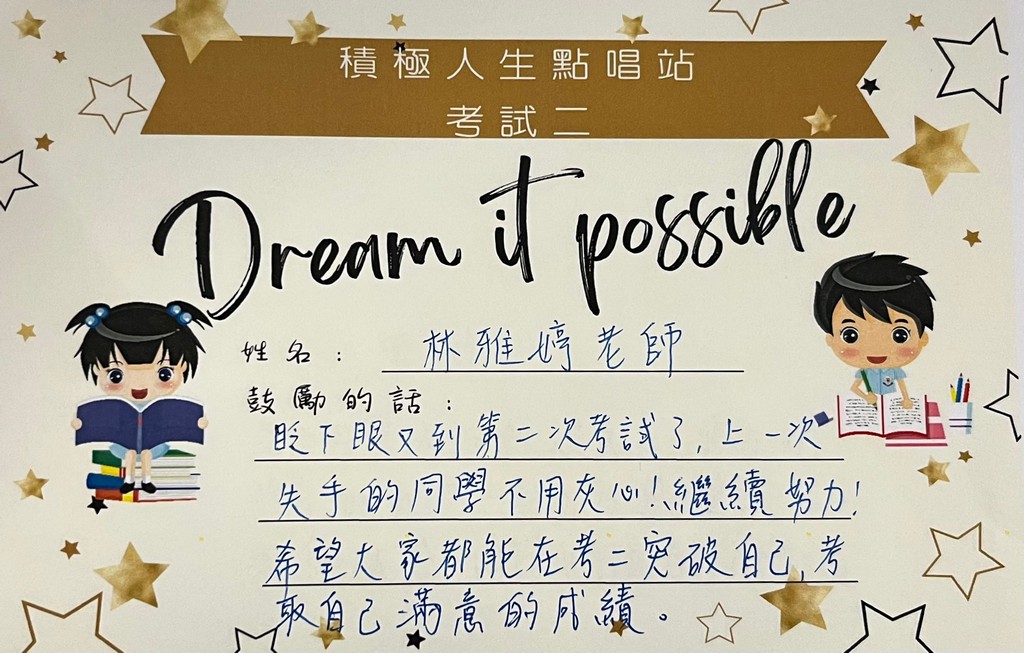 積極人生點唱站
考試二
Dream it possible
姓名： 林雅婷老師
鼓勵的話：
眨下眼又到第二次考試了，上一次
失手的同學不用灰心！繼續努力！
希望大家都能在考二突破自己，考
取自己滿意的成績。